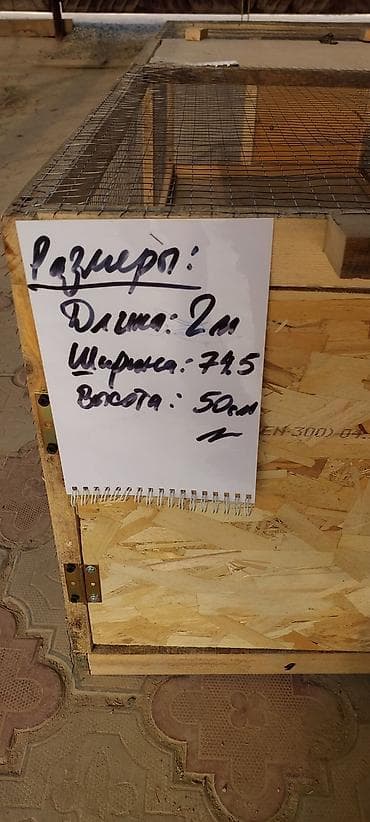 Размеры:
Длина: 2м
Ширина: 74,5
Высота: 50см
EN 300) 04.